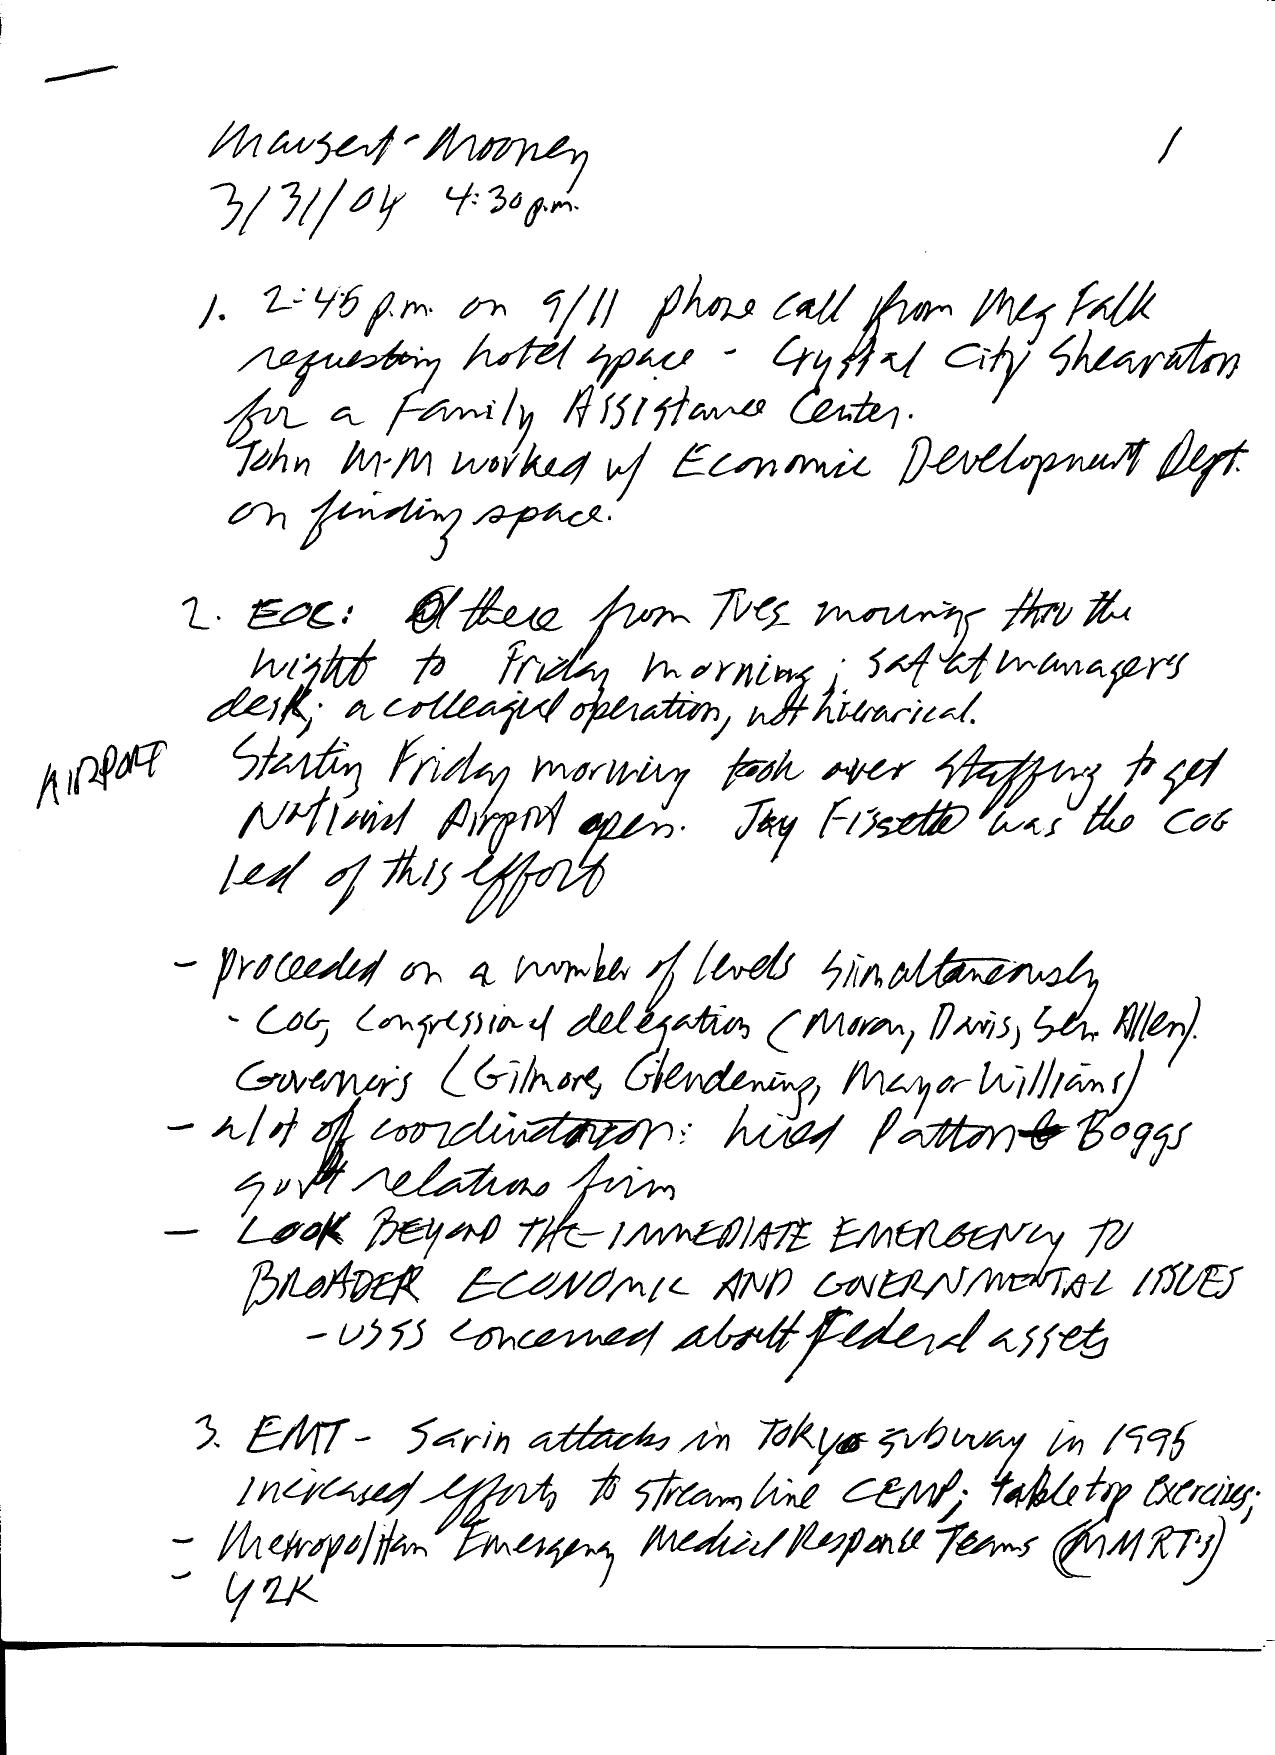 Mausert-Mooney
1
3/31/04 4:30 p.m.
1. 2:45 p.m. on 9/11 phone call from Meg Falk
requesting hotel space - Crystal City Shearaton
for a Family Assistance Center.
John M-M worked w/ Economic Development Dept.
on finding space.
2. EOC: there from Tues morning thru the
night to Friday morning; sat at manager's
desk; a collegial operation, not hierarical.
AIRPORT
Starting Friday morning took over staffing to get
National Airport open. Jay Fissette was the COG
led of this effort
- proceeded on a number of levels simultaneously
- COG, Congressional delegation (Moran, Davis, Sen. Allen).
Governors (Gilmore, Glendening, Mayor Williams)
- a lot of coordination: hired Patton Boggs
gov't relations firm
- LOOK BEYOND THE IMMEDIATE EMERGENCY TO
BROADER ECONOMIC AND GOVERNMENTAL ISSUES
- USSS concerned about federal assets
3. EMT - Sarin attacks in Tokyo subway in 1995
increased efforts to streamline CEMP; tabletop exercises;
- Metropolitan Emergency Medical Response Teams (MMRT's)
- Y2K